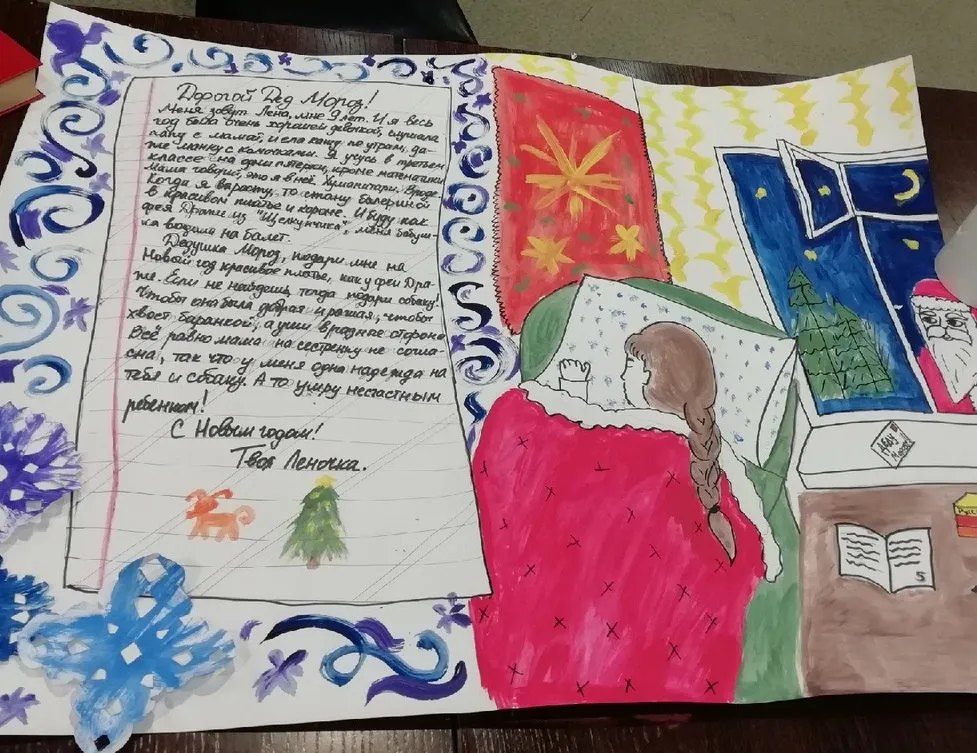 Дорогой Дед Мороз!
Меня зовут Лена, мне 9 лет. И я весь
год была очень хорошей девочкой, слушала
папу с мамой, и ела кашу по утрам, да-
же манку с комочками. Я учусь в третьем
классе на одни пятёрки, кроме математики
Мама говорит, это я в неё. Гуманитарий. Вроде.
Когда я вырасту, то стану балериной
в красивом платье и короне. И буду как
фея Драже из "Щелкунчика", меня бабуш-
ка водила на балет.
Дедушка Мороз, подари мне на
Новый год красивое платье, как у феи Дра-
же. Если не найдёшь, тогда подари собаку!
Чтобы она была добрая и рыжая, чтобы
хвост баранкой, а уши в разные стороны
Всё равно мама на сестрёнку не согла-
сна, так что у меня одна надежда на
тебя и собаку. А то умру несчастным
ребёнком!
С Новым годом!
Твоя Леночка.
Деду
Морозу
5